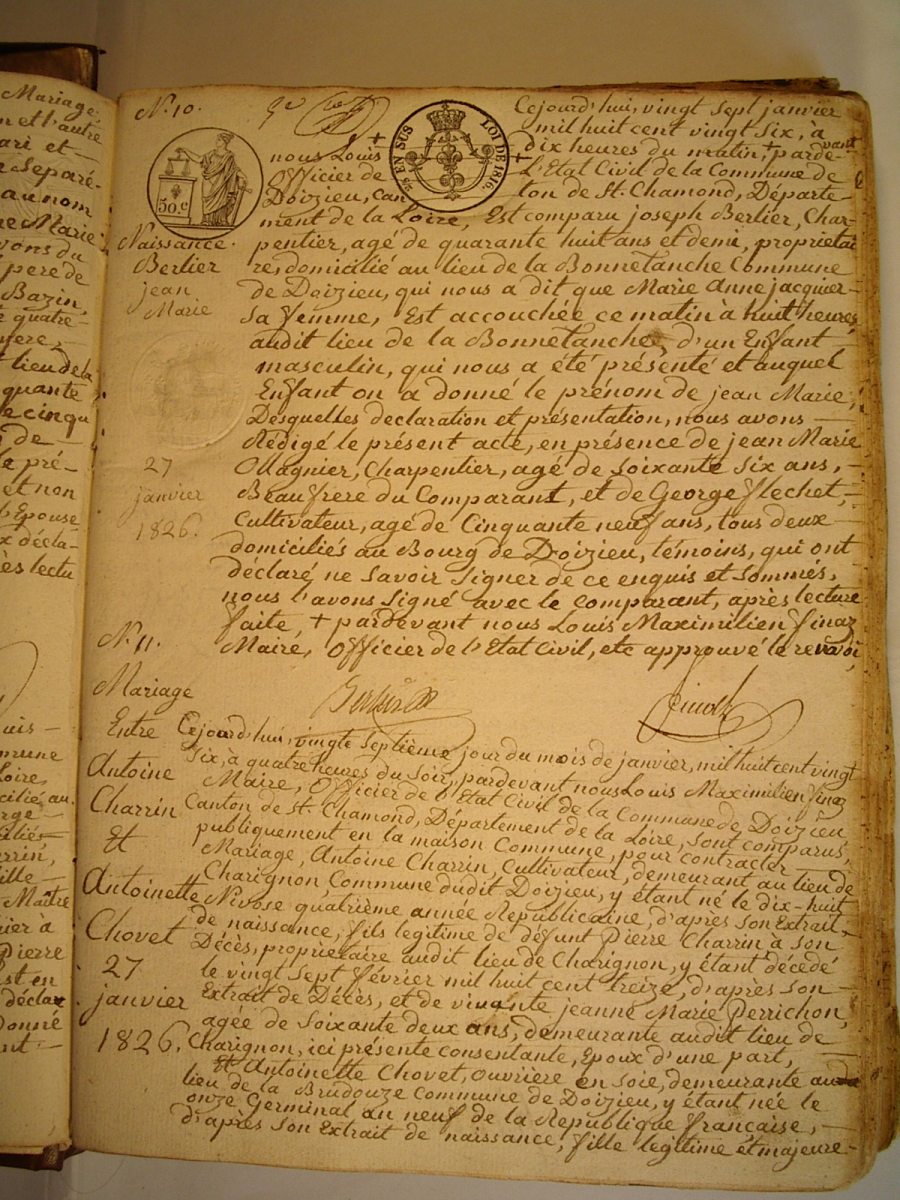 Mariage
n et l'autre
ari et —
e Separé-
au nom
ne Marie
vons du
pere de
Bazin,
é quatre-
yere, —
t lieu de la
quante
e cinqu
s de —
le pré-
et non
l'Epouse
x décla-
ès lectu
uis —
mmune
Loire,
cilié au
rge —
iliés —
rrin,
ille —
Maître
ier à
Pierre
st en
déclar
donné
ant. —
N.° 10.
50.c
EN SUS
LOI DE 1816.
Naissance.
Berlier
jean
Marie
27
janvier
1826.
Cejourd'hui, vingt sept janvier
mil huit cent vingt six, à
dix heures du matin, + pardevant
nous Louis + L'Etat Civil de la Commune de
Officier de
Doizieu, Can ton de St. Chamond, Départe-
ment de la Loire, Est comparu joseph Berlier, Char-
pentier, agé de quarante huit ans et demi, proprietai
re, domicilié au lieu de la Bonnetanche Commune
de Doizieu, qui nous a dit que Marie Anne jacquier
sa femme, Est accouchée ce matin à huit heures
audit lieu de la Bonnetanche, d'un Enfant —
masculin, qui nous a été présenté et auquel
Enfant on a donné le prénom de jean Marie,
Desquelles declaration et présentation, nous avons —
Rédigé le présent acte, en présence de jean Marie
Ollagnier, Charpentier, agé de soixante six ans, —
Beaufrere du Comparant, et de George flechet, —
Cultivateur, agé de Cinquante neuf ans, tous deux —
domiciliés au Bourg de Doizieu, témoins, qui ont
déclaré ne savoir signer de ce enquis et sommés,
nous l'avons signé avec le comparant, après lecture
faite, + pardevant nous Louis Maximilien finaz
Maire, Officier de l'Etat Civil, etc approuvé le renvoi,
Berlier
finaz
N.° 11.
Mariage
Entre
Antoine
Charrin
Et
Antoinette
Chovet
27
janvier
1826.
Cejourd'hui, vingte septième jour du mois de janvier, mil huit cent vingt
six, à quatre heures du soir, pardevant nous Louis Maximilien finaz
Maire, Officier de l'Etat Civil de la Commune de Doizieu
Canton de St. Chamond, Département de la Loire, sont comparus,
publiquement en la maison Commune, pour contracter —
Mariage, Antoine Charrin, Cultivateur, demeurant au lieu de
Charignon, Commune dudit Doizieu, y étant né le dix-huit
Nivose quatrième année Republicaine, d'après son Extrait
de naissance, fils legitime de défunt Pierre Charrin à son
Décès, propriétaire audit lieu de Charignon, y étant décédé
le vingt sept février mil huit cent treize, d'après son —
Extrait de Décès, et de vivante jeanne Marie Perrichon,
agée de soixante deux ans, demeurante audit lieu de —
Charignon, ici présente consentante, Epoux d'une part, —
Et Antoinette Chovet, ouvrière en soie, demeurante au
lieu de la Brudouze Commune de Doizieu, y étant née le
onze Germinal an neuf de la Republique française, —
d'après son Extrait de naissance, fille legitime et majeure —